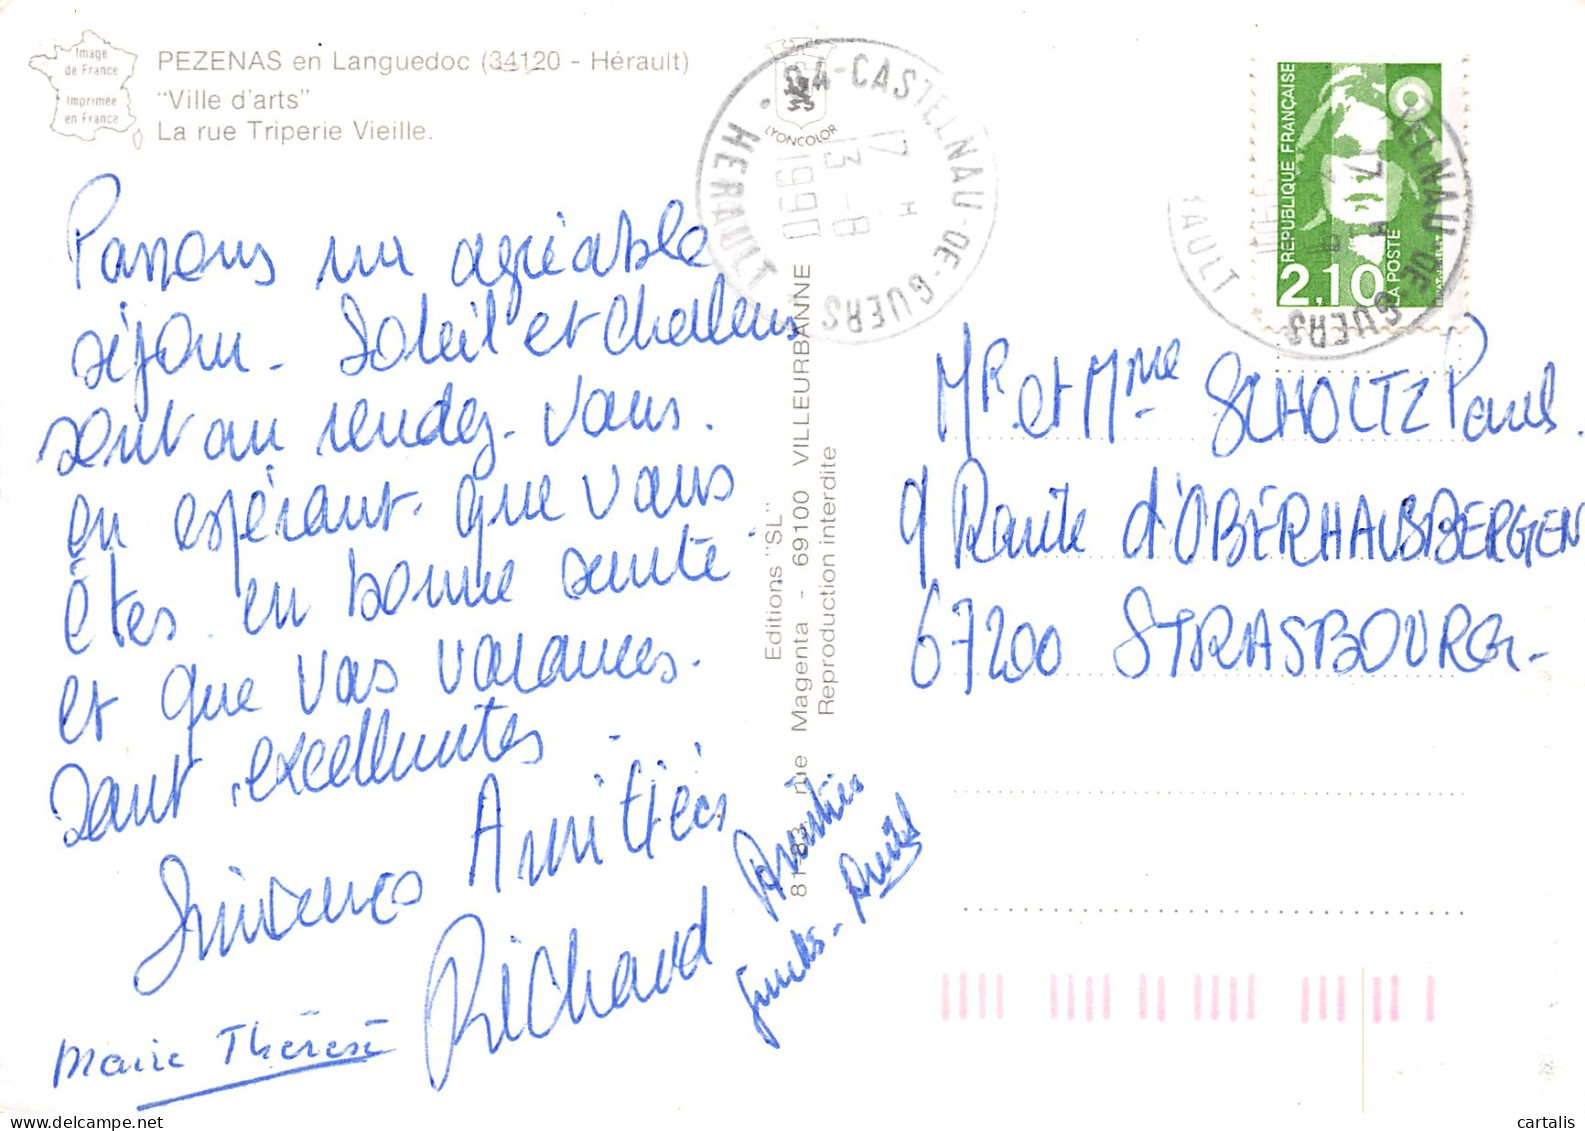 Image
de France
Imprimée
en France
PEZENAS en Languedoc (34120 - Hérault)
"Ville d'arts"
La rue Triperie Vieille.
LYONCOLOR
34-CASTELNAU-DE-GUERS
HERAULT
17 H
13 - 8
1990
REPUBLIQUE FRANÇAISE
2,10
LA POSTE
ELNAU-DE-GUERS
AULT
17 H
Passons un agréable
séjour - Soleil et chaleur
sont au rendez-vous.
en espérant que vous
êtes en bonne santé
et que vos vacances
sont excellentes.
Sincères Amitiés
Richard
Marie Thérèse
Amitiés
Editions "SL"
81-83, rue Magenta - 69100 VILLEURBANNE
Reproduction interdite
Mr et Mme SCHOLTZ Paul
9 Route d'OBERHAUSBERGEN
67200 STRASBOURG -
cartalis